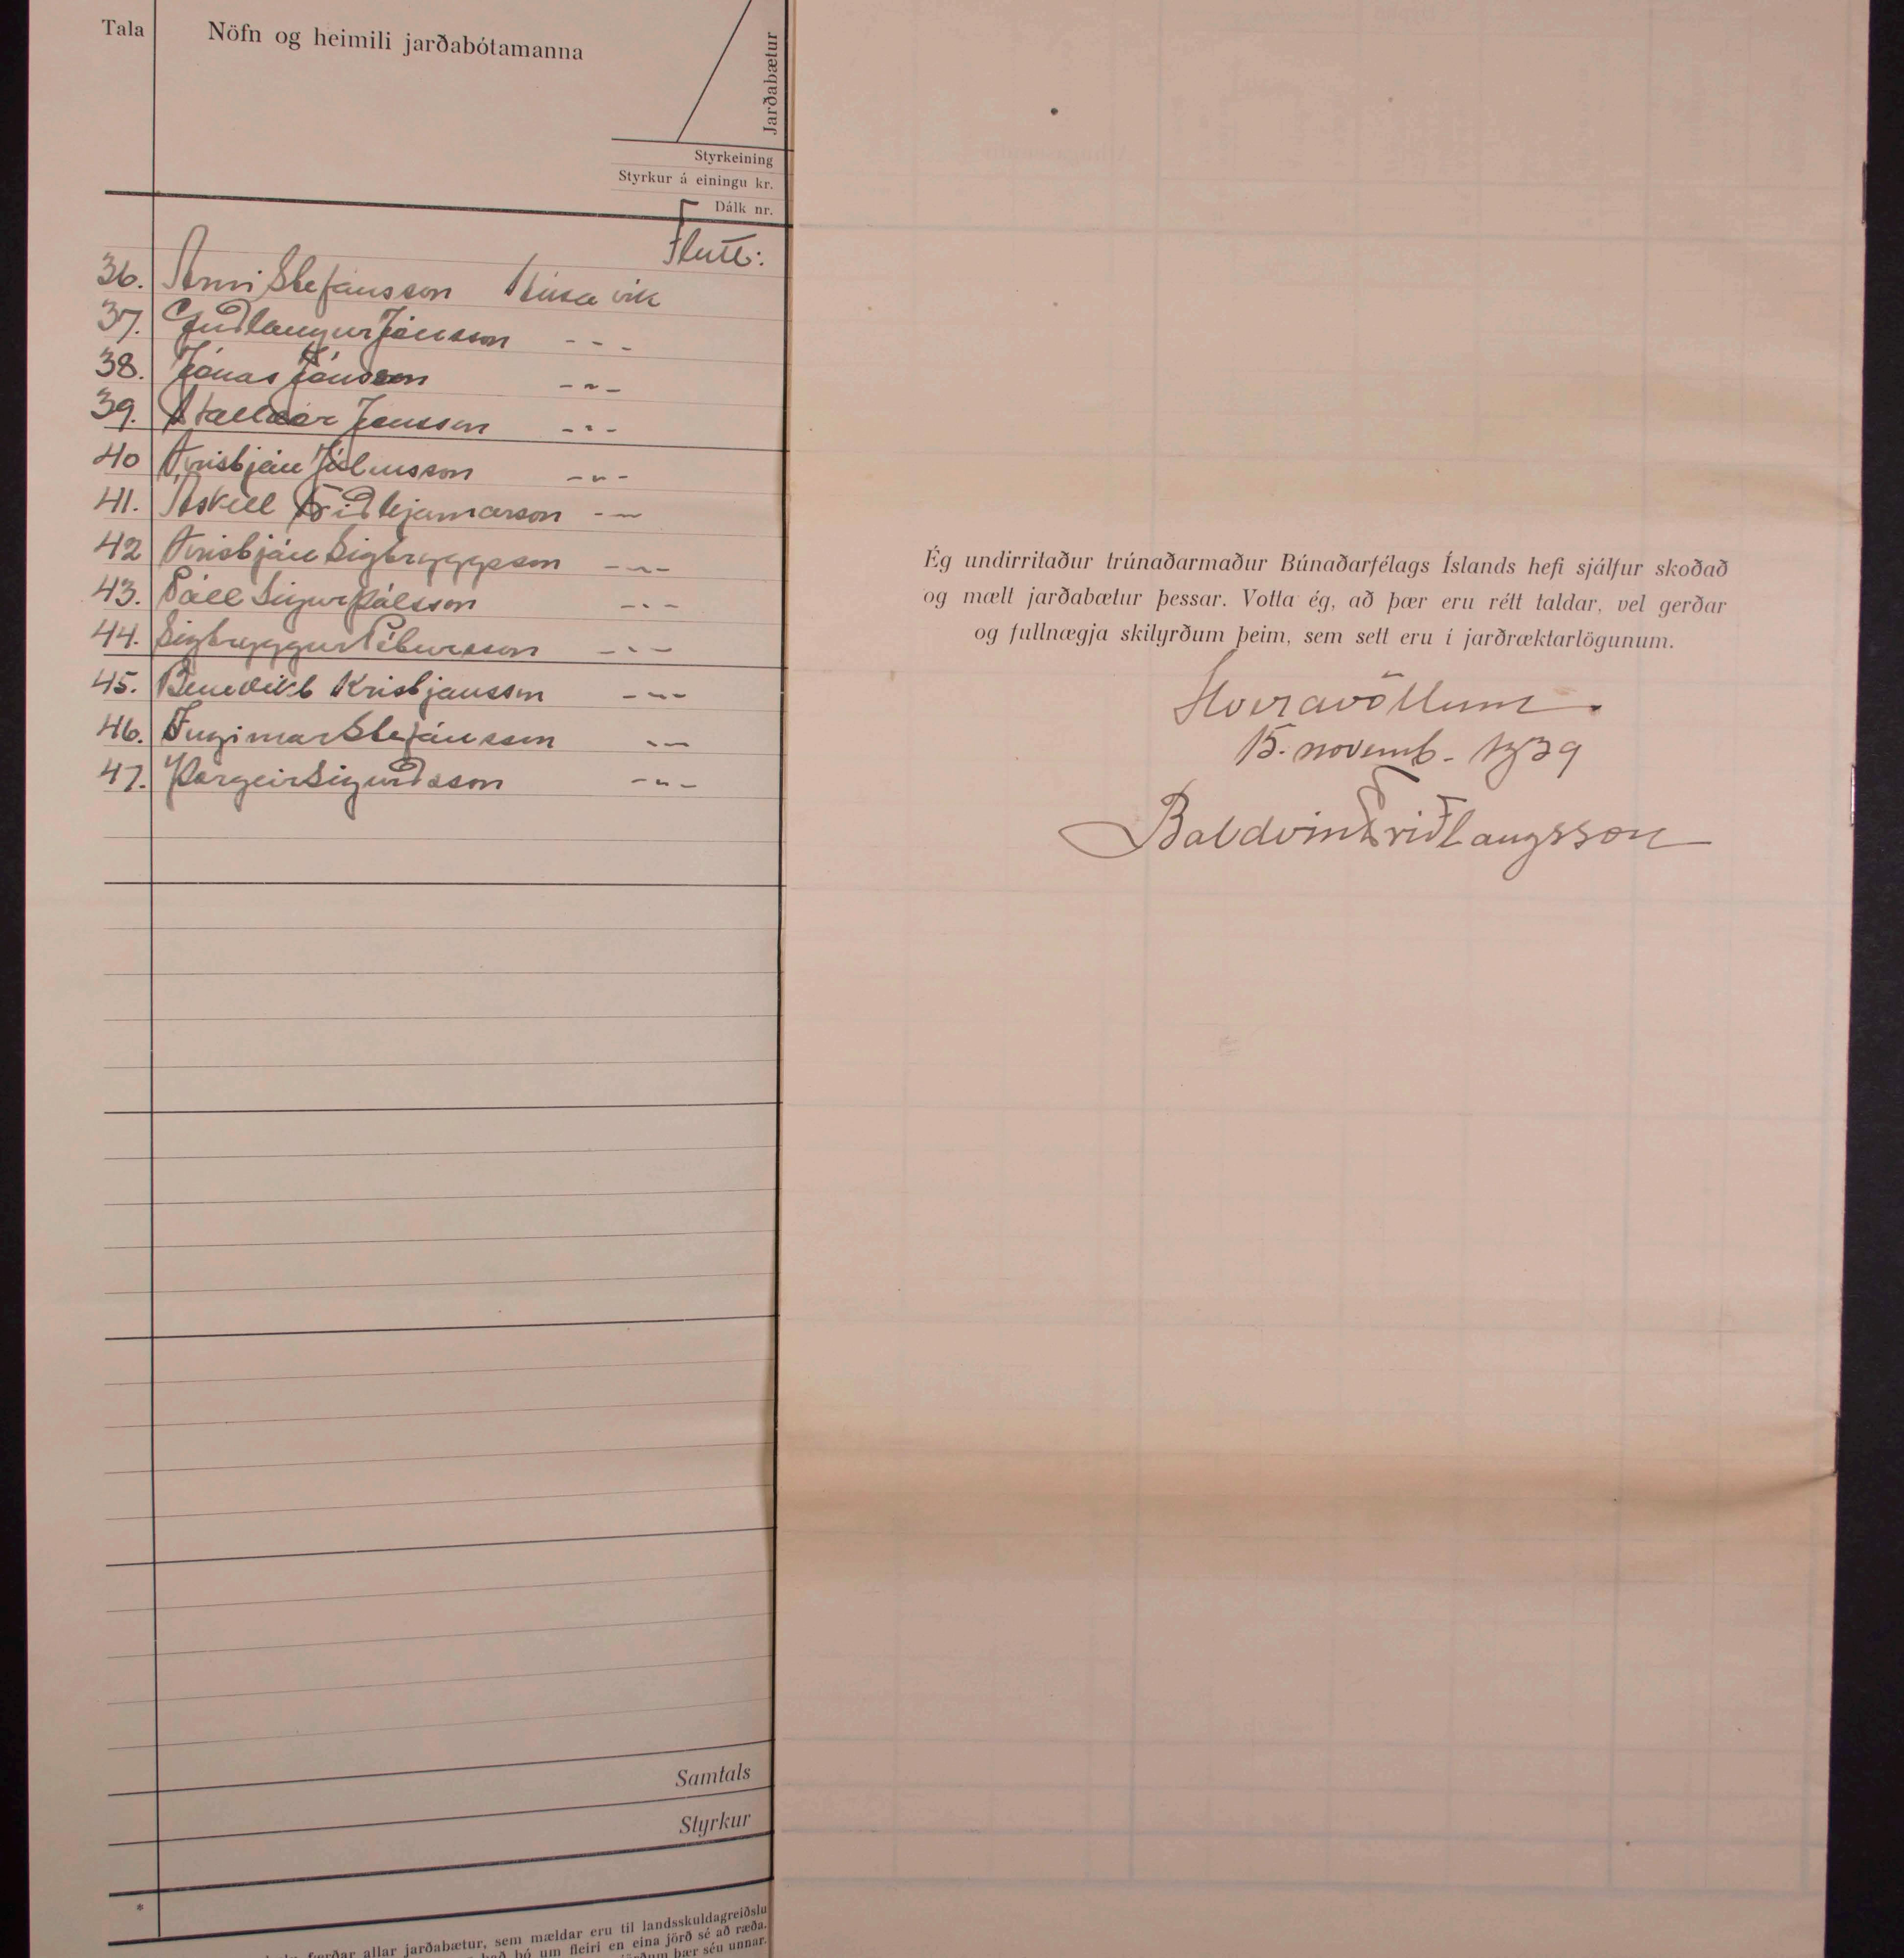 Tala
Nöfn og heimili jarðabótamanna
Jarðabætur
Styrkeining
Styrkur á einingu kr.
Dálk nr.
Flutt:
36. Árni Stefánsson Húsavík
37. Guðlaugur Jónsson - - -
38. Jónas Jónsson - " -
39. Jónsson - " -
40 Kristján Júlíusson - " -
41. Áskell Friðbjarnarson - " -
42 Kristján Sigtryggsson - " -
43. Páll Sigurpálsson - " -
44. Sigtryggur Pétursson - " -
45. Benedikt Kristjansson - " -
46. Ingimar Stefánsson - " -
47. Þorgeir Sigurðsson - " -
Samtals
Styrkur
*
allar jarðabætur, sem mældar eru til landsskuldagreiðslu
þó um fleiri en eina jörð sé að ræða.
þær séu unnar.
Ég undirritaður trúnaðarmaður Búnaðarfélags Íslands hefi sjálfur skoðað
og mælt jarðabætur þessar. Votta ég, að þær eru rétt taldar, vel gerðar
og fullnægja skilyrðum þeim, sem sett eru í jarðræktarlögunum.
Hveravöllum
15. novemb. 1939
Baldvin Friðlaugsson